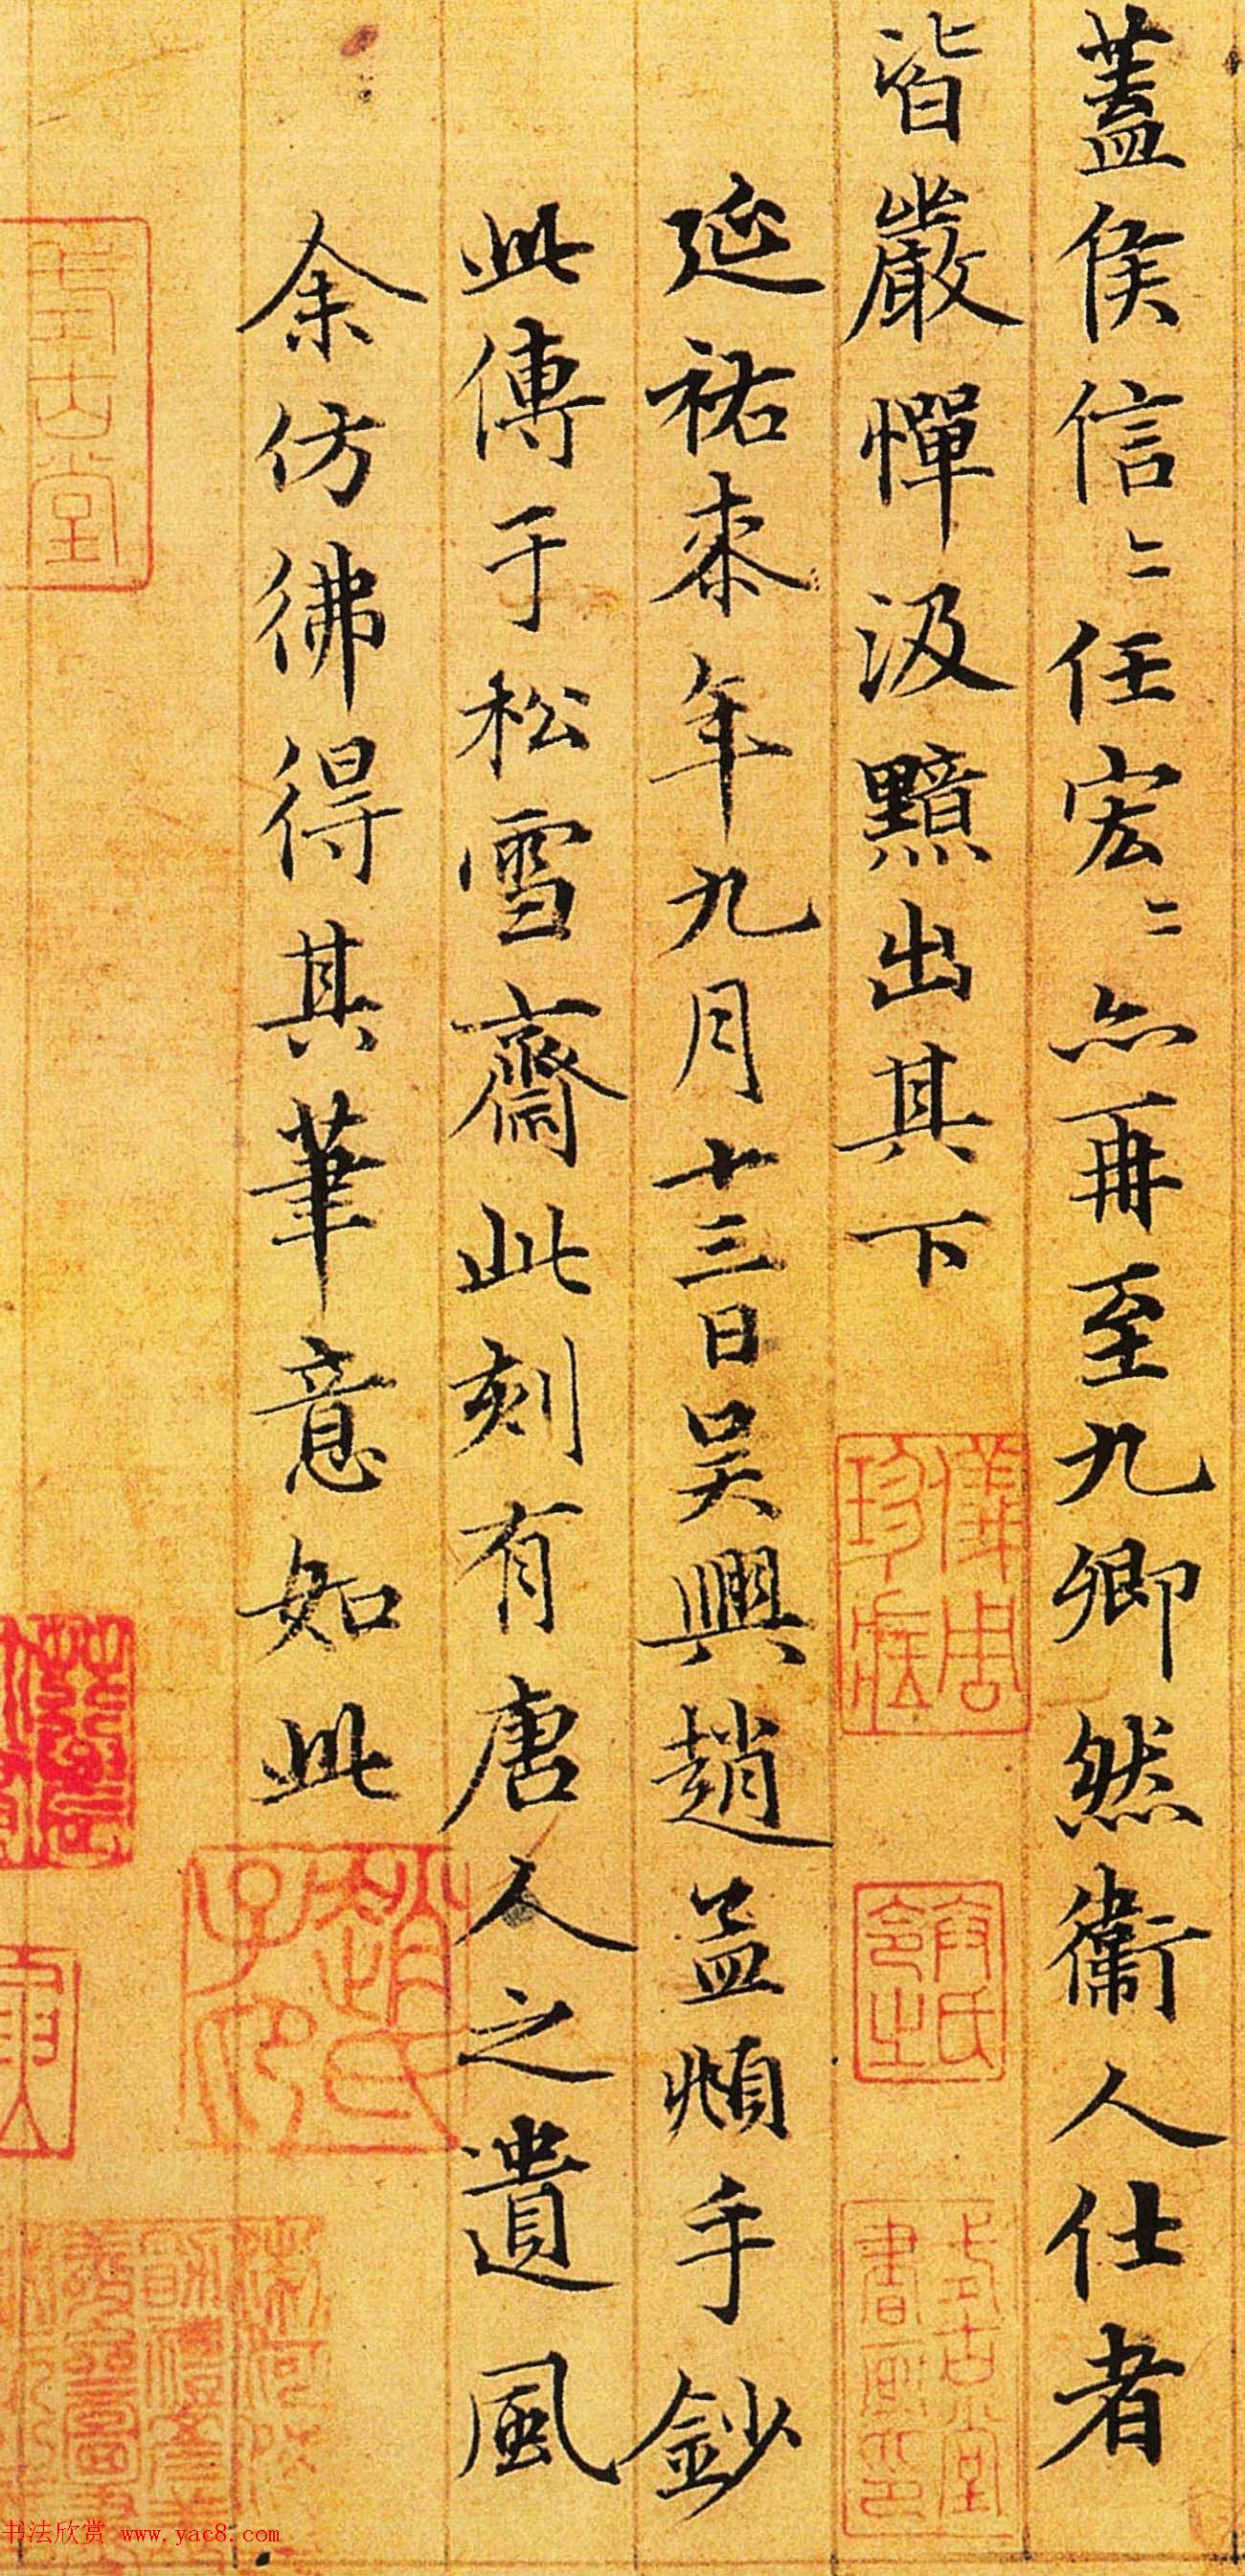 蓋侯信〻任宏〻亦再至九卿然衞人仕者
皆嚴憚汲黯出其下
延祐柒年九月十三日吳興趙孟頫手鈔
此傳于松雪齋此刻有唐人之遺風
余仿彿得其筆意如此
儀周珍藏
趙氏子昂
书法欣赏 www.yac8.com